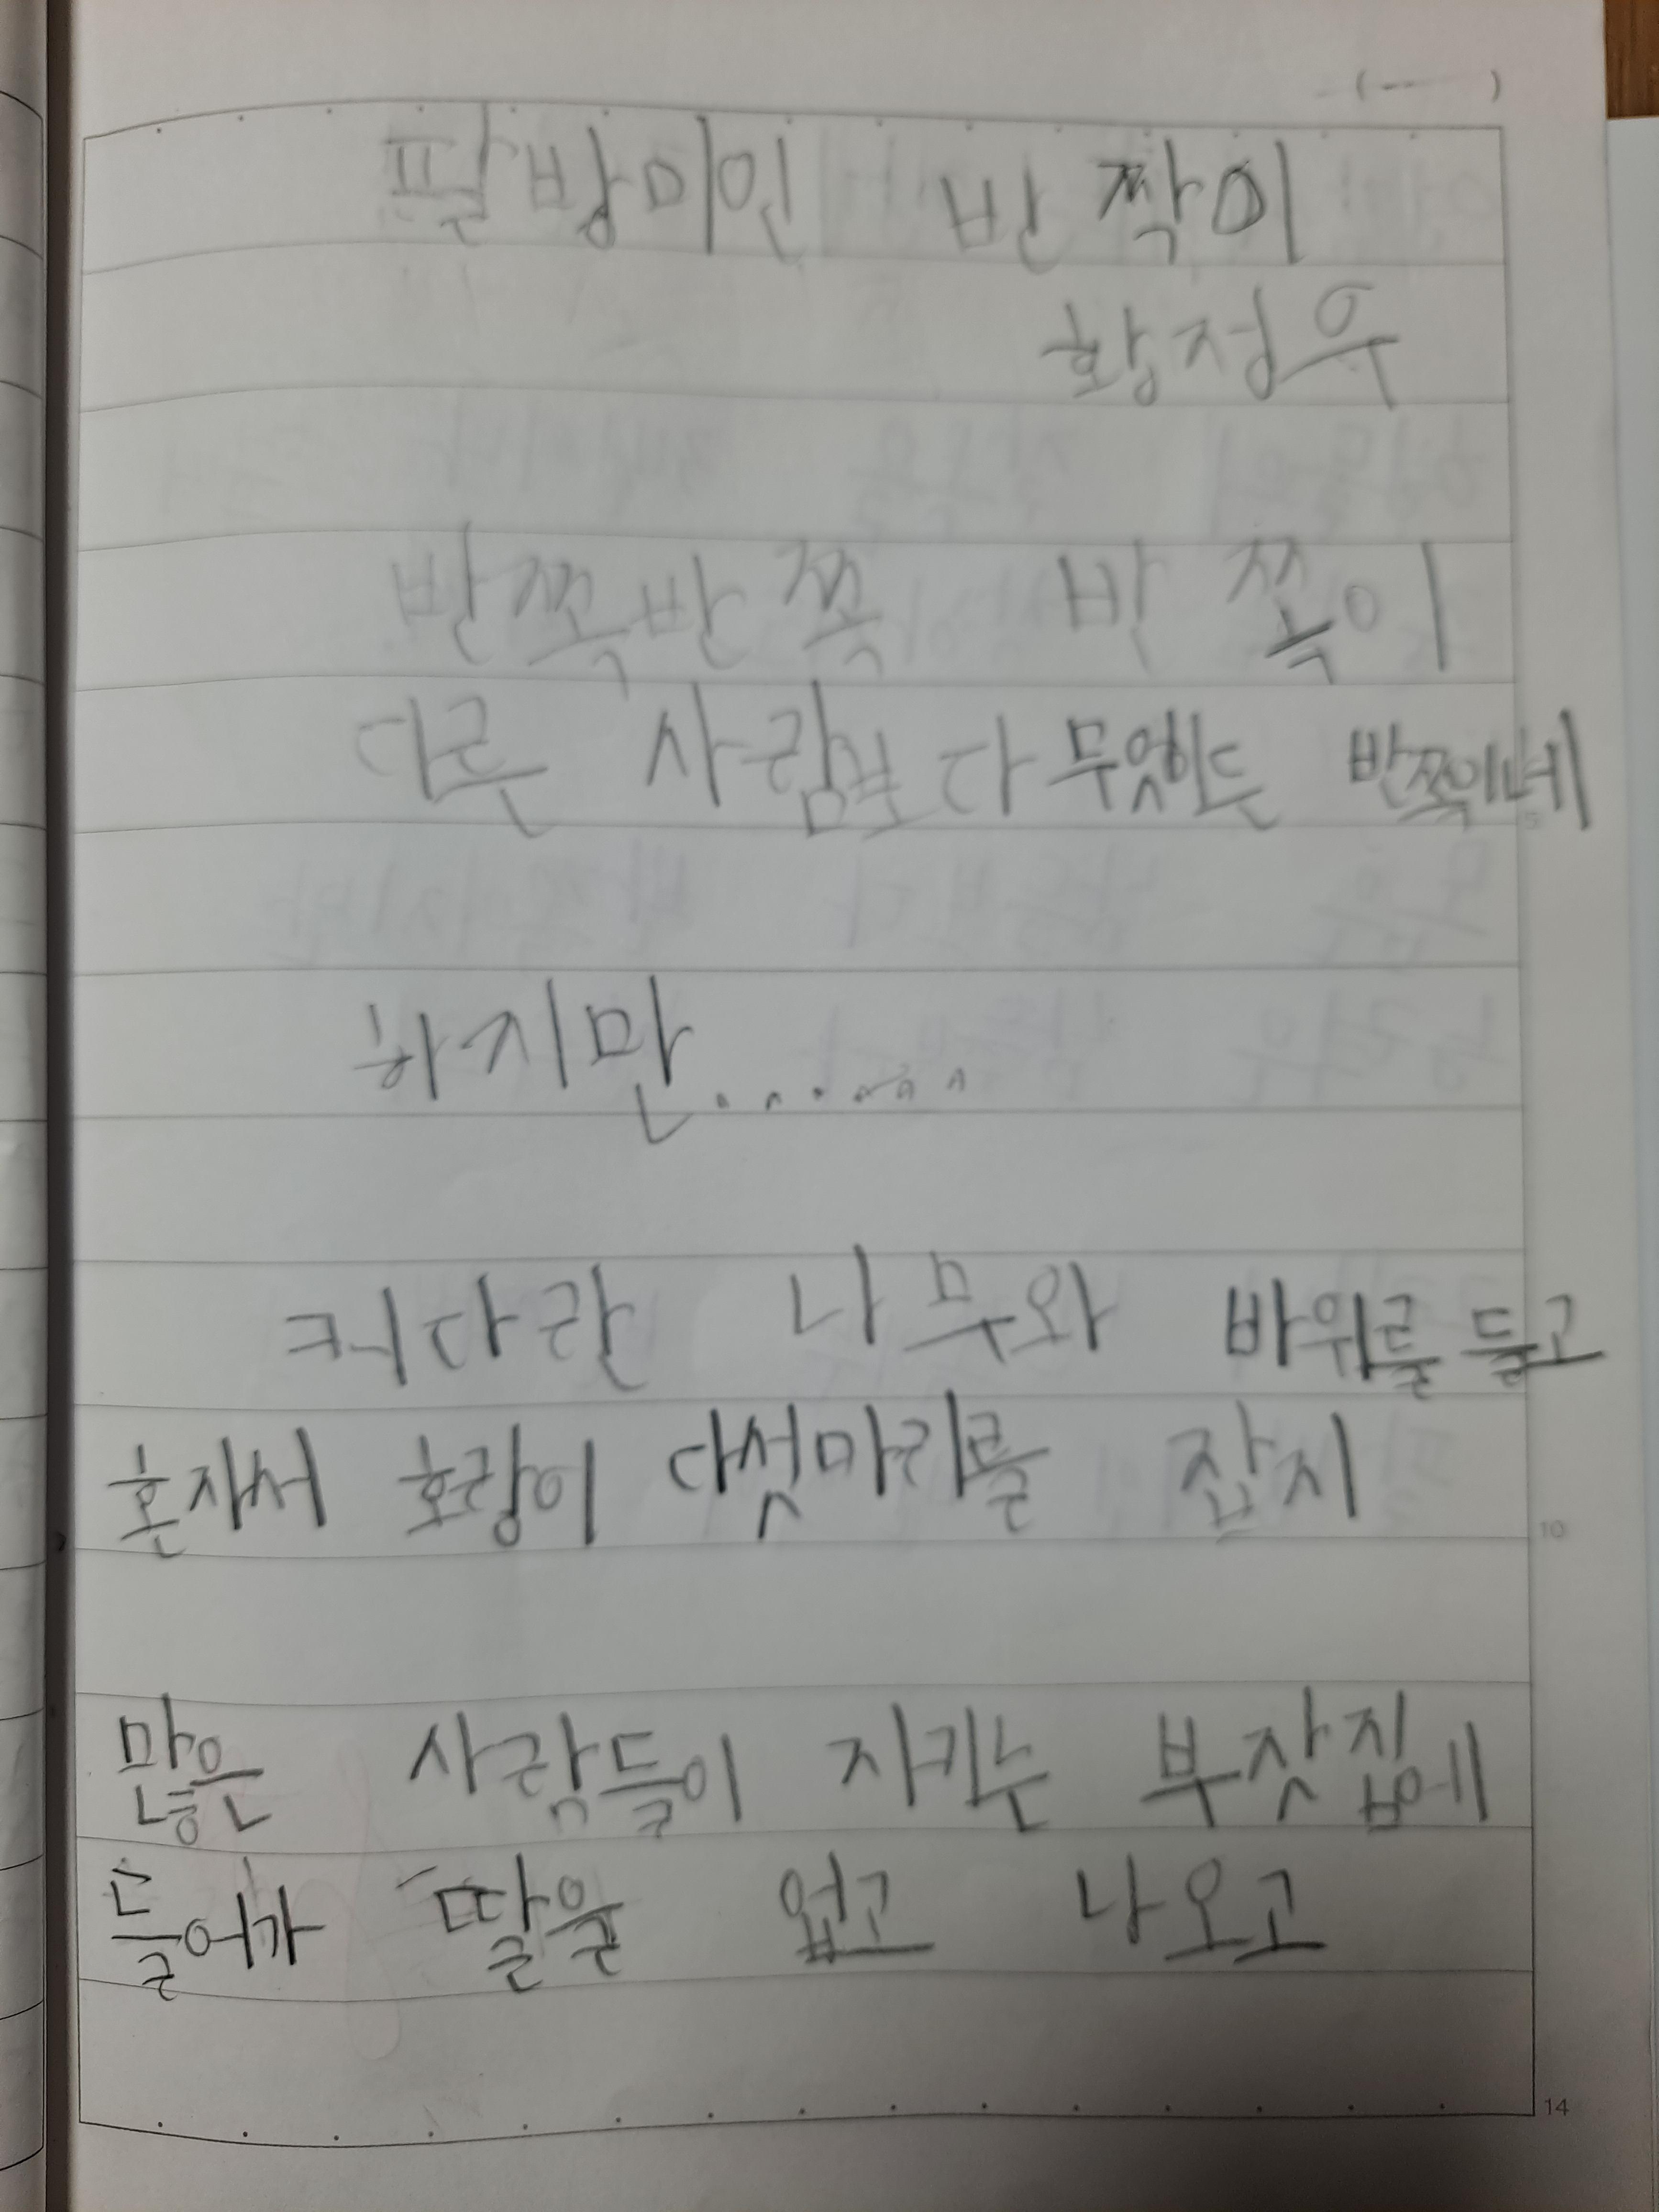 팔방미인 반짝이
황정우
반쪽반쪽 반쪽이
다른 사람보다 무엇이든 반쪽이네
하지만.......
커다란 나무와 바위를 들고
혼자서 호랑이 다섯마리를 잡지
많은 사람들이 지키는 부잣집에
들어가 딸을 업고 나오고
10
14